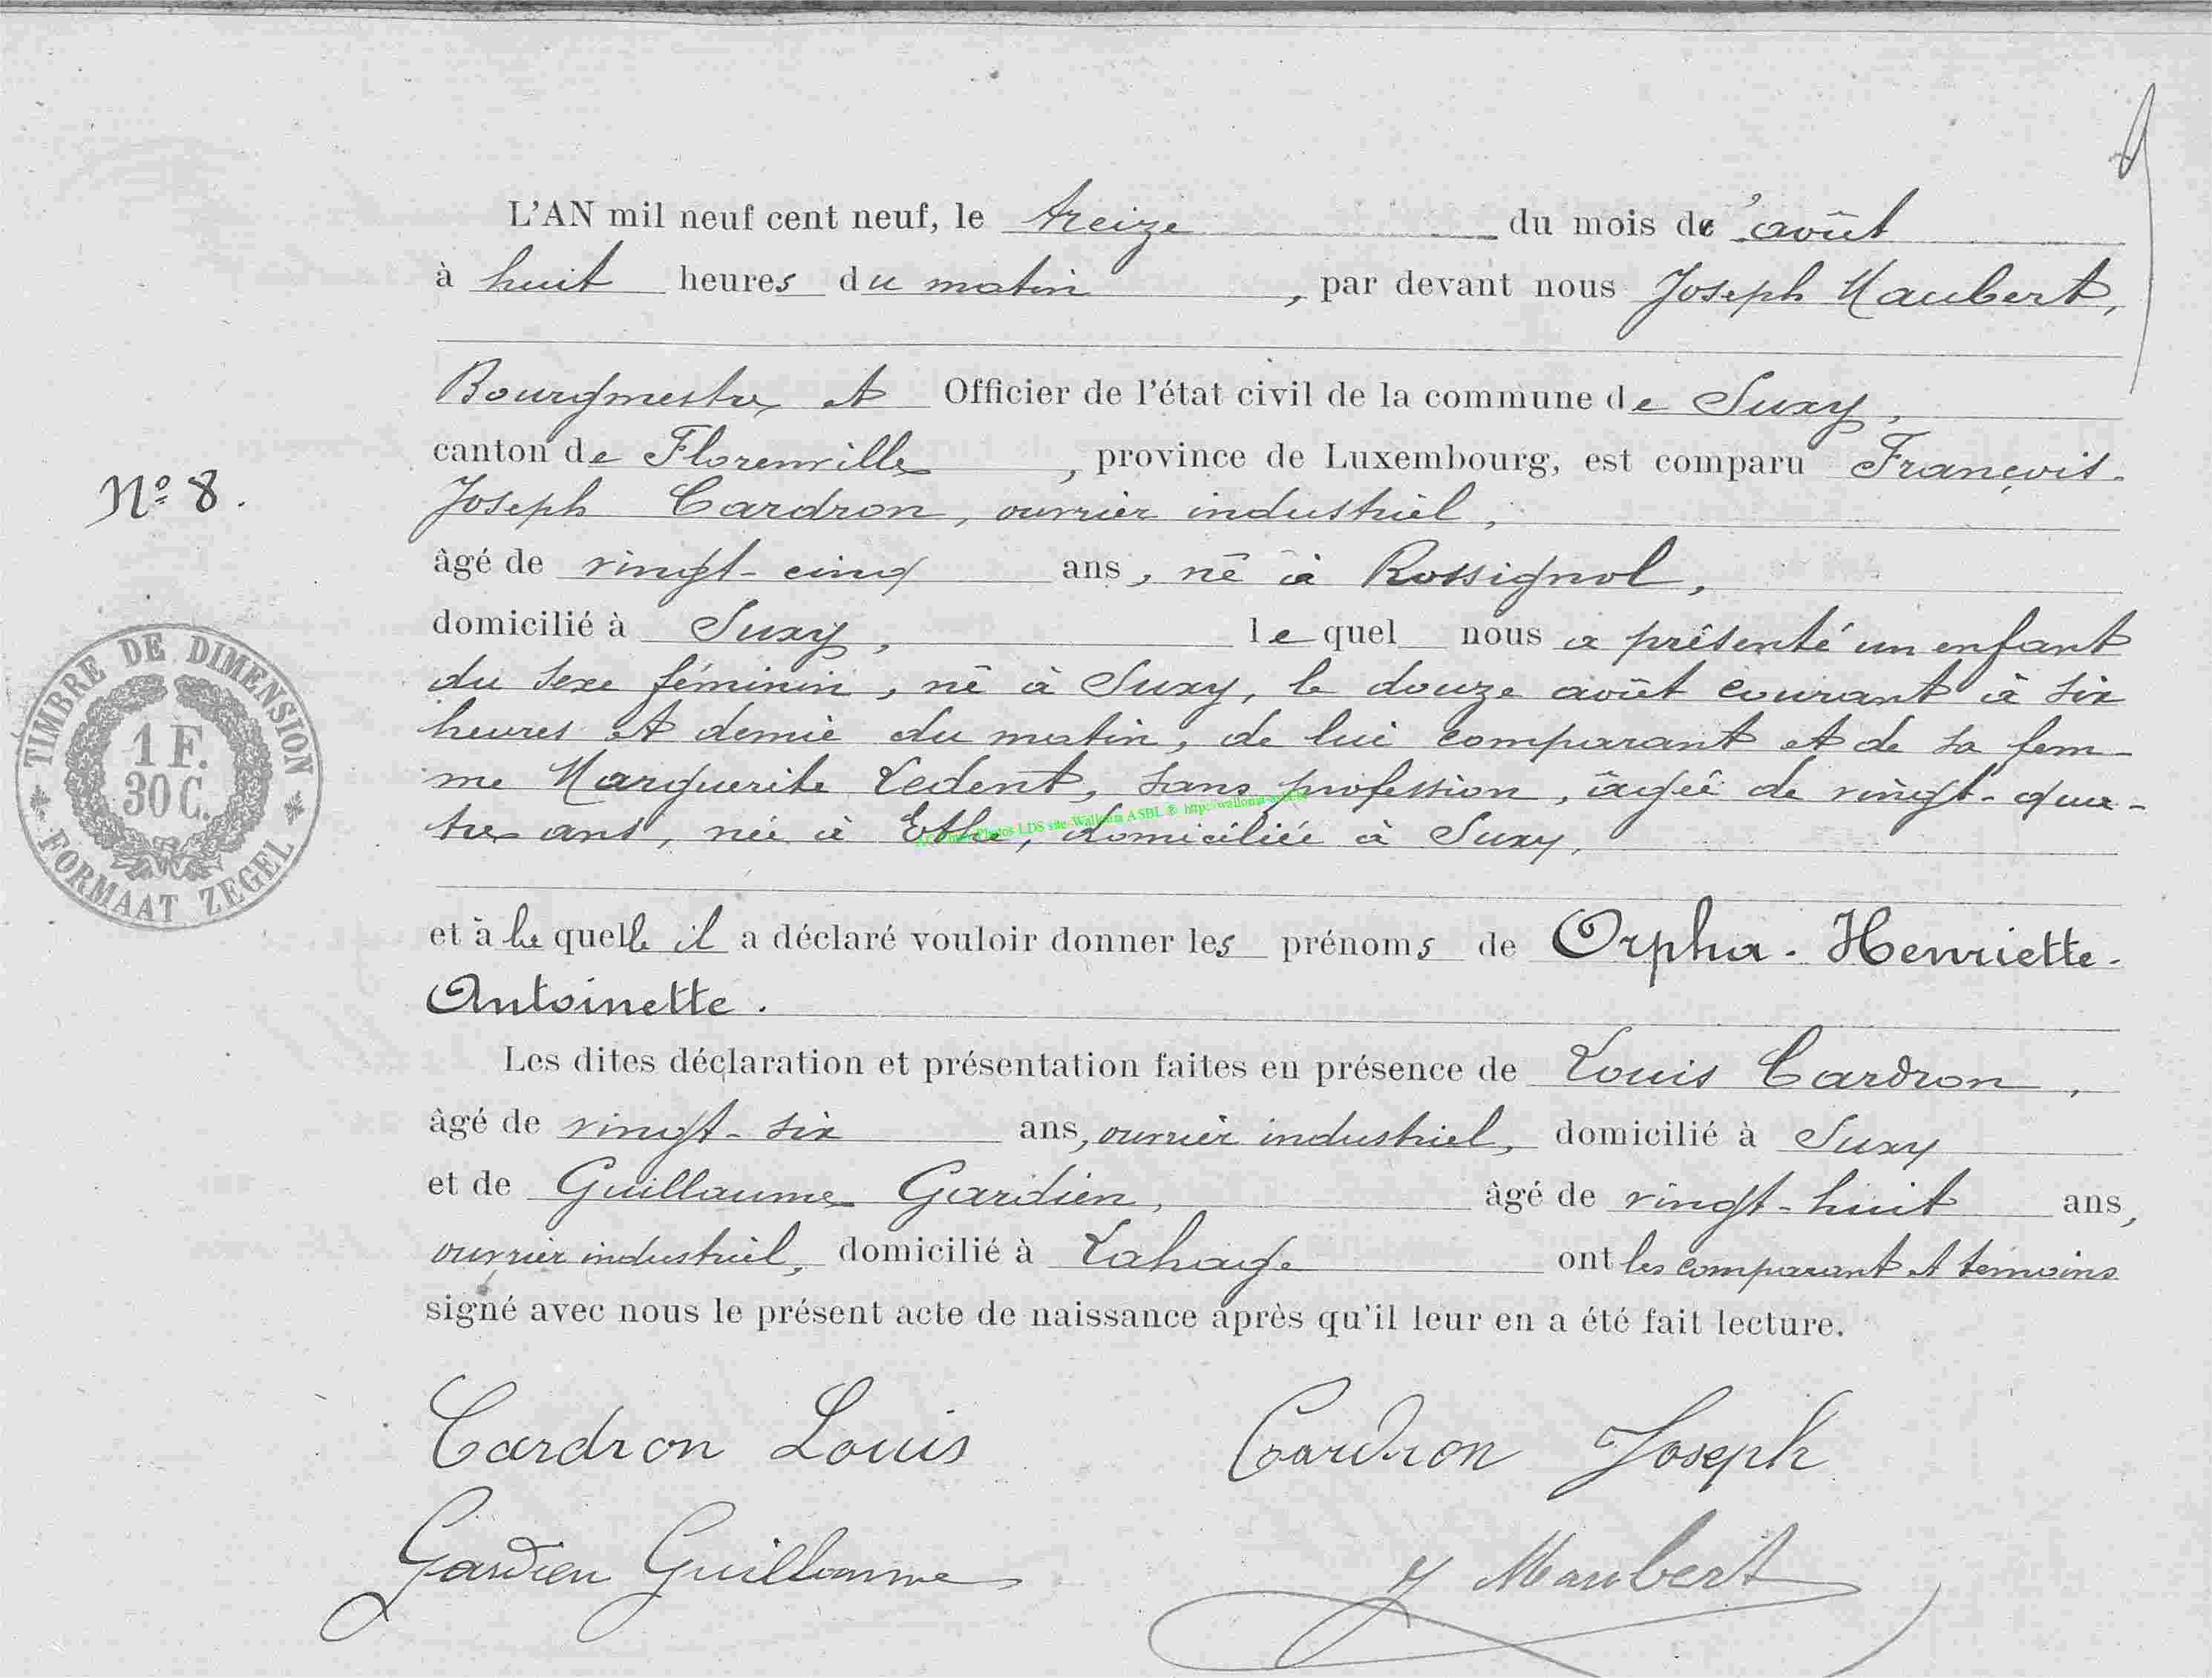 L'AN mil neuf cent neuf, le treize du mois d'août
à huit heures du matin, par devant nous Joseph Maubert,
Bourgmestre et Officier de l'état civil de la commune de Suxy,
canton de Florenville, province de Luxembourg, est comparu François-
Joseph Cardron, ouvrier industriel,
N° 8.
âgé de vingt-cinq ans, né à Rossignol,
domicilié à Suxy, lequel nous a présenté un enfant
du sexe féminin, né à Suxy, le douze août courant à six
heures et demie du matin, de lui comparant et de sa fem-
me Marguerite Ledent, sans profession, âgée de vingt-qua-
tre ans, née à Ethe, domiciliée à Suxy,
TIMBRE DE DIMENSION
1 F.
30 C.
FORMAAT ZEGEL
Photos LDS site Wallonia ASBL ® http://wallonia-asbl
et à laquelle il a déclaré vouloir donner les prénoms de Orpha-Henriette-
Antoinette.
Les dites déclaration et présentation faites en présence de Louis Cardron,
âgé de vingt-six ans, ouvrier industriel, domicilié à Suxy
et de Guillaume Gardien, âgé de vingt-huit ans,
ouvrier industriel, domicilié à Lahage ont les comparant et témoins
signé avec nous le présent acte de naissance après qu'il leur en a été fait lecture.
Cardron Louis Cardron Joseph
Gardien Guillaume J Maubert